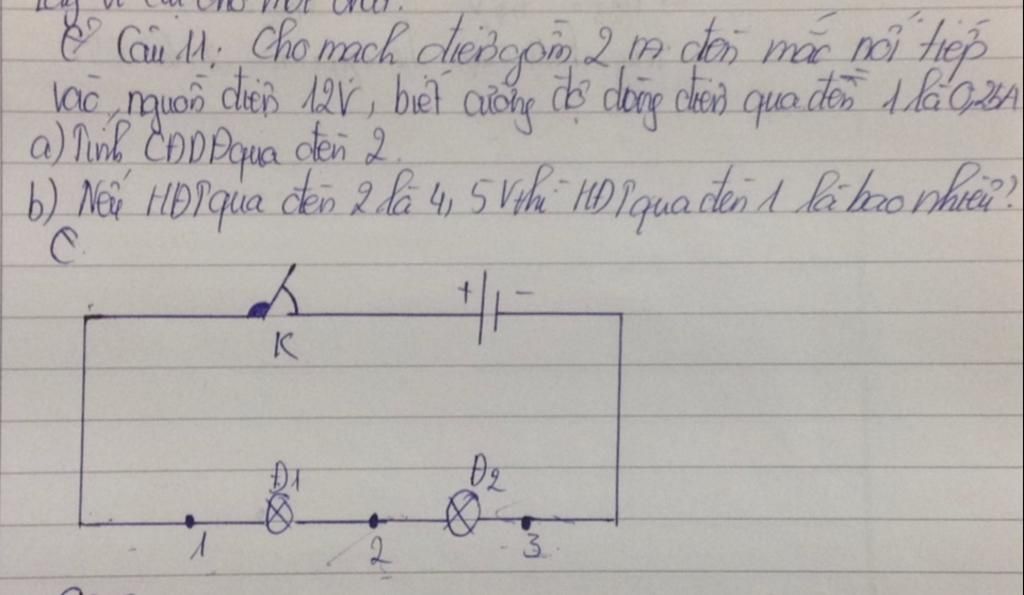 Câu 11: Cho mạch điện gồm 2 đèn mắc nối tiếp
vào nguồn điện 12V, biết cường độ dòng điện qua đèn 1 là 0,25A
a) Tính CĐDĐ qua đèn 2.
b) Nếu HĐT qua đèn 2 là 4,5V thì HĐT qua đèn 1 là bao nhiêu?
C
+ -
K
Đ1 Đ2
1 2 3